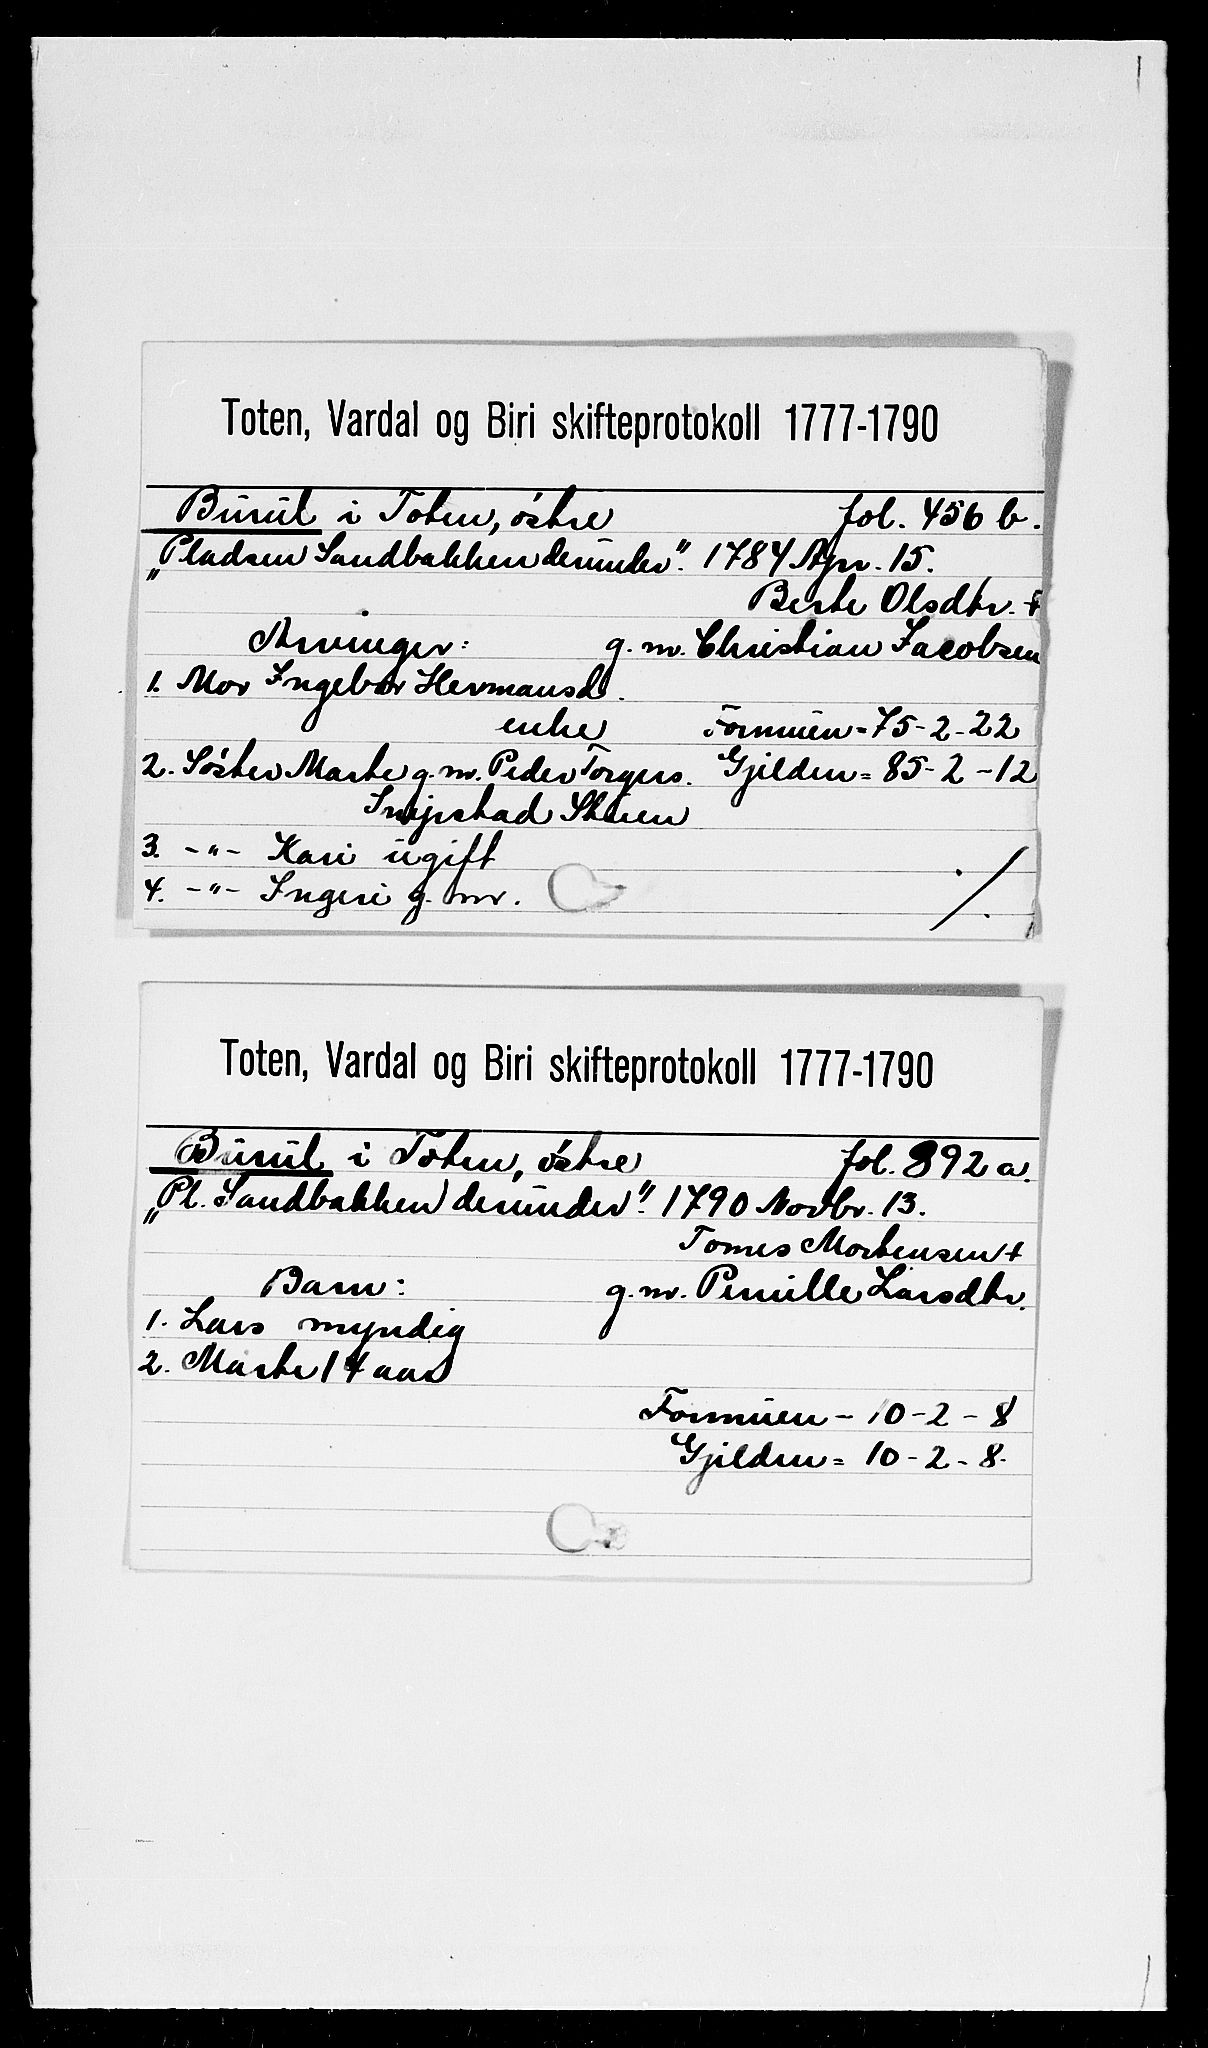 Toten, Vardal og Biri skifteprotokoll 1777-1790
Burul i Toten, östre fol. 456 b.
„Pladsen Sandbakken derunder". 1784 Apr. 15.
Berte Olsdtr. +
Arvinger: g. m. Christian Jacobsen
1. Mor Ingebor Hermansd.
enke Formuen = 75-2-22
2. Söster Marte g. m. Peder Torgers. Gjælden = 85-2-12
Snipstad Stuen
3. -"- Kari ugift
4. -"- Ingeri g. m.
Toten, Vardal og Biri skifteprotokoll 1777-1790
Burul i Toten, östre fol. 892 a.
„Pl. Sandbakken derunder". 1790 Novbr. 13.
Tomes Mortensen +
Barn: g. m. Pernille Larsdtr.
1. Lars myndig
2. Marte 14 aar
Formuen - 10-2-8
Gjælden = 10-2-8.